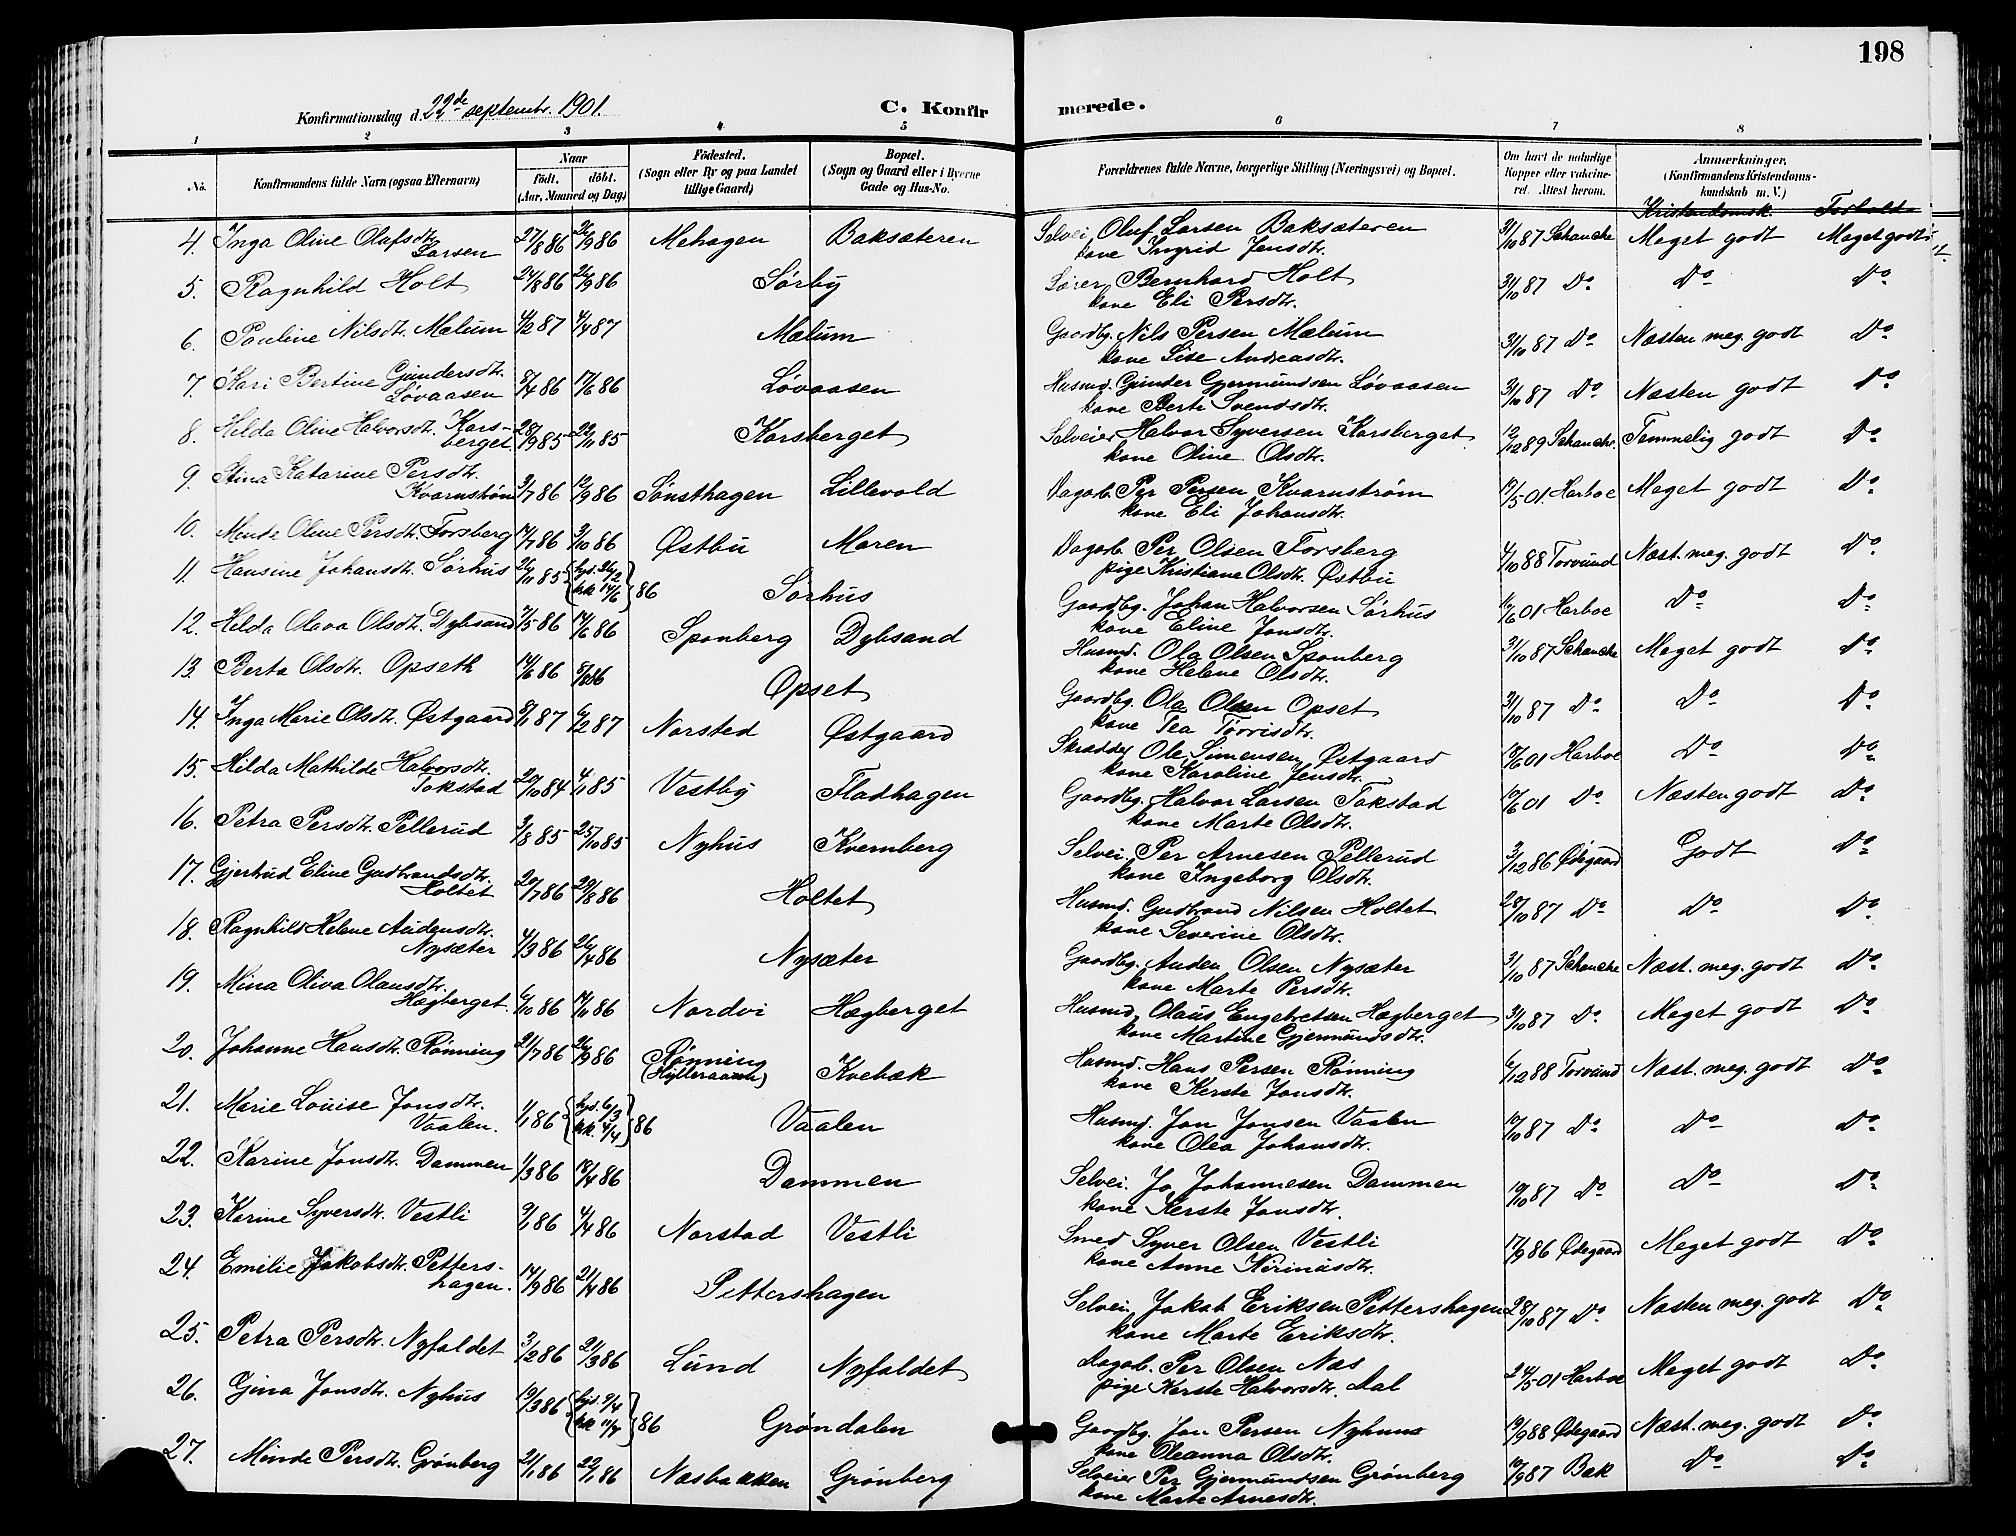 198
Konfirmationsdag d. 22de septembr. 1901.
C. Konfirmerede.
1 2 3 4 5 6 7 8
No.
Konfirmandens fulde Navn (ogsaa Efternavn)
Naar
født. døbt.
(Aar, Maaned og Dag)
Fødested.
(Sogn eller By og paa Landet
tillige Gaard)
Bopæl.
(Sogn og Gaard eller i Byerne
Gade og Hus-No.
Forældrenes fulde Navne, borgerlige Stilling (Næringsvei) og Bopæl.
Om havt de naturlige
Kopper eller vakcine-
ret. Attest herom.
Anmærkninger.
(Konfirmandens Kristendoms-
kundskab m. V.)
Kristendomsk. Forhold
4. Inga Oline Olafsdtr. Larsen 27/8 86 26/9 86 Mehagen Baksæteren Selvei. Oluf Larsen Baksæteren 31/10 87 Schanche Meget godt Meget godt
kone Ingrid Jensdtr.
5. Ragnhild Holt 24/8 86 26/9 86 Sørby Lærer Bernhard Holt 31/10 87 Do. Do. Do.
kone Eli Persdtr.
6. Pauline Nilsdtr. Mælum 4/2 87 4/4 87 Mælum Gaardbg. Nils Persen Mælum 31/10 87 Do. Næsten meg. godt Do.
kone Lise Andreasdtr.
7. Kari Bertine Gundersdtr. Løvaasen 8/4 86 17/6 86 Løvaasen Husmd. Gunder Gjermundsen Løvaasen 31/10 87 Do. Næsten godt Do.
kone Berte Svendsdtr.
8. Hilda Oline Halvorsdtr. Korsberget 28/9 85 22/11 85 Korsberget Selveier Halvor Syversen Korsberget 12/12 89 Schanche. Temmelig godt Do.
kone Oline Olsdtr.
9. Stina Katarine Persdtr. Kvarnstrøm 3/7 86 12/9 86 Sønsthagen Lillevold Dagarb. Per Persen Kvarnstrøm 19/5 01 Harboe Meget godt Do.
kone Eli Johansdtr.
10. Minde Oline Persdtr. Forsberg 14/7 86 3/10 86 Østbu Moren Dagarb. Per Olsen Forsberg 4/10 88 Torvund Næst. meg. godt Do.
pige Kristiane Olsdtr. Østbu
11. Hansine Johansdtr. Sørhus 26/11 85 {hjd. 26/2 kk 14/6} 86 Sørhus Gaardbg. Johan Halvorsen Sørhus 16/6 01 Harboe Do. Do.
kone Eline Jonsdtr.
12. Hilda Olava Olsdtr. Dybsand 7/5 86 14/6 86 Sponberg Dybsand Husmd. Ola Olsen Sponberg 31/10 87 Schanche Meget godt Do.
kone Helene Olsdtr.
13. Berta Olsdtr. Opseth 14/6 86 Opset Gaardbg. Ola Olsen Opset 31/10 87 Do. Do. Do.
kone Tea Torrisdtr.
14. Inga Marie Olsdtr. Østgaard 8/1 87 6/2 87 Norsted Østgaard Skrædder Ole Simensen Østgaard 18/6 01 Harboe Do. Do.
kone Karoline Jensdtr.
15. Hilda Mathilde Halvorsdtr. Tokstad 20/10 84 4/1 85 Vestby Fladhagen Gaardbg. Halvor Larsen Tokstad 10/6 01 Do. Næsten godt Do.
kone Marte Olsdtr.
16. Petra Persdtr. Pellerud 3/8 85 25/10 85 Nyhus Kvernberg Selvei. Per Arnesen Pellerud 3/12 86 Ødegaard Godt Do.
kone Ingeborg Olsdtr.
17. Gjertrud Eline Gudbrandsdtr. Holtet 20/7 86 29/8 86 Holtet Husmd. Gudbrand Nilsen Holtet 28/10 87 Do. Do. Do.
kone Severine Olsdtr.
18. Ragnhild Helene Audensdtr. Nysæter 4/3 86 26/4 86 Nysæter Gaardbg. Auden Olsen Nysæter 31/10 87 Schanche Næst. meg. godt Do.
kone Marte Persdtr.
19. Mina Oliva Olausdtr. Hægberget 6/10 86 14/11 86 Nordvi Hægberget Husmd. Olaus Engebretsen Hægberget 31/10 87 Do. Meget godt Do.
kone Martine Gjermundsdtr.
20. Johanne Hansdtr. Rønning 21/7 86 26/9 86 Rønning (Hylleraasen) Kvebæk Husmd. Hans Persen Rønning 6/12 88 Torvund Næst. meg. godt Do.
kone Kerste Jonsdtr.
21. Marie Louise Jonsdtr. Vaalen. 1/1 86 {hjd. 6/3 kk. 4/4} 86 Vaalen Husmd. Jon Jonsen Vaalen 19/10 87 Do. Do. Do.
kone Olea Johansdtr.
22. Karine Jonsdtr. Dammen 1/3 86 18/4 86 Dammen Selvei. Jo Johannesen Dammen 19/10 87 Do. Do. Do.
kone Kerste Jonsdtr.
23. Karine Syversdtr. Vestli 9/1 86 4/4 86 Norstad Vestli Smed Syver Olsen Vestli 17/9 86 Ødegaard Meget godt Do.
kone Anne Kirinusdtr.
24. Emilie Jakobsdtr. Pettershagen. 14/9 86 21/11 86 Pettershagen Selvei. Jakob Eriksen Pettershagen 28/10 87 Do. Næsten meg. godt Do.
kone Marte Eriksdtr.
25. Petra Persdtr. Nyfaldet 3/2 86 21/3 86 Lund Nyfaldet Dagarb. Per Olsen Næs 24/5 01 Harboe Meget godt Do.
pige Kerste Halvorsdtr. Aal
26. Gina Jonsdtr. Nyhus 19/3 86 {hjd. 9/4 kk 11/7} 86 Grøndalen Gaardbg. Jon Persen Nyhuus 19/9 88 Ødegaard Næst. meg. godt Do.
kone Oleanna Olsdtr.
27. Minde Persdtr. Grønberg 21/1 86 Næsbakken Grønberg Selveier Per Gjermundsen Grønberg 19/9 87 Bak Do. Do.
kone Marte Arnesdtr.